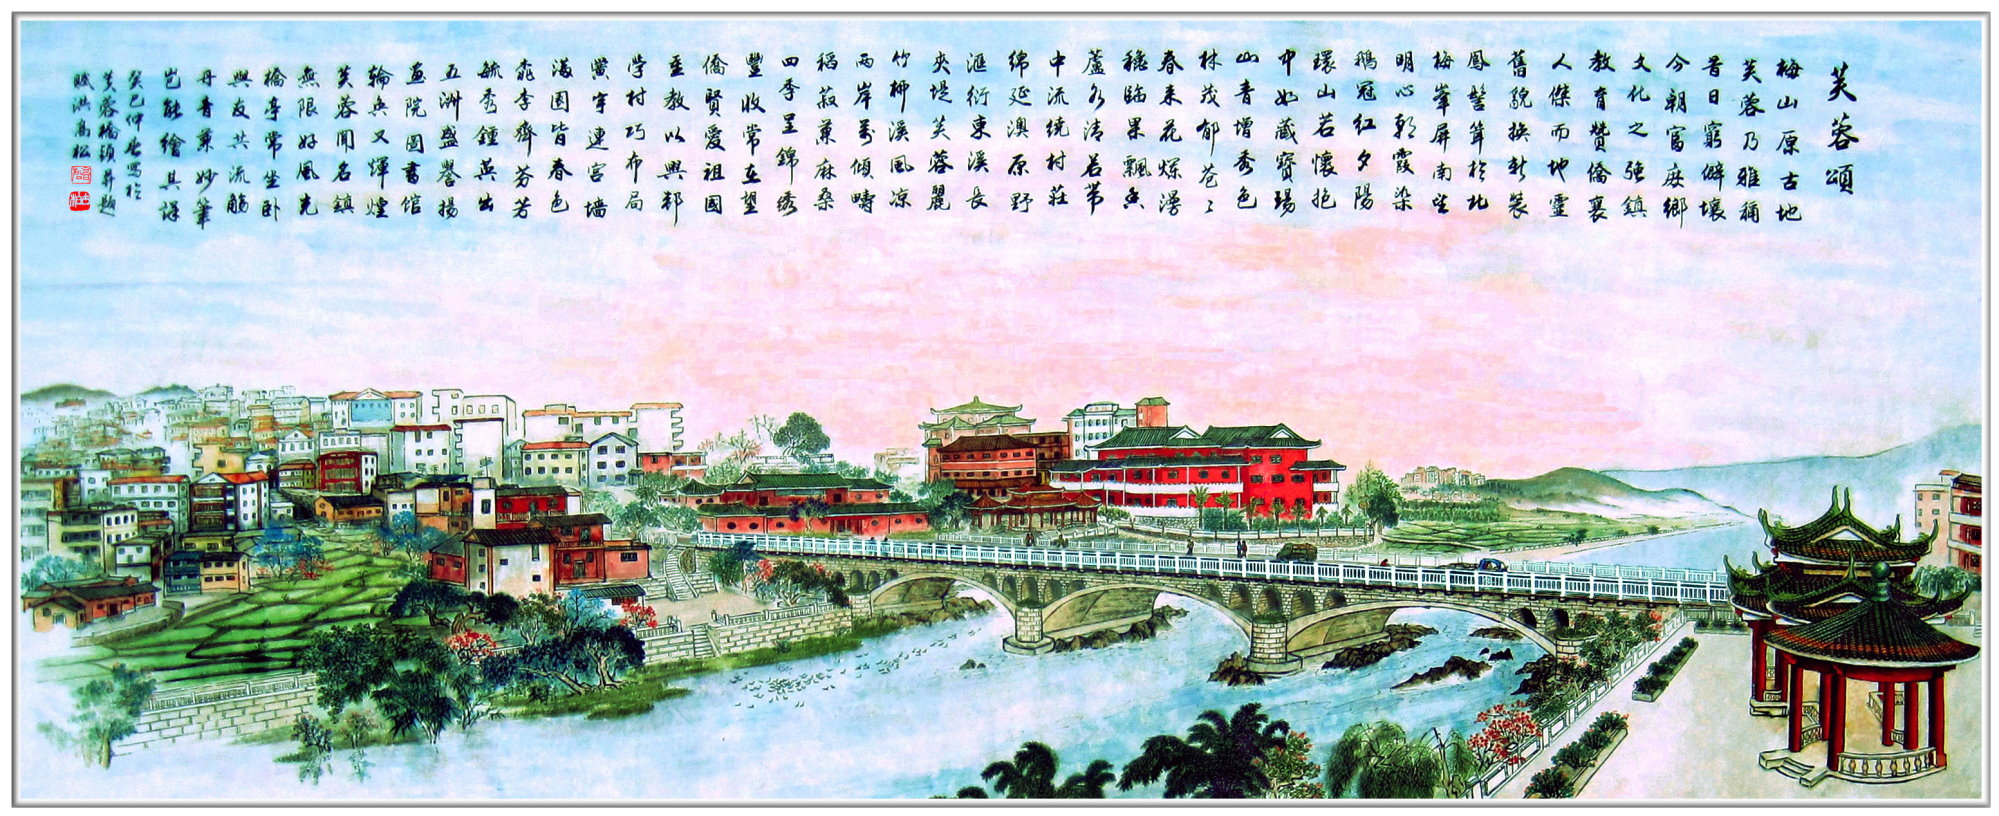 芙蓉頌
梅山原古地
芙蓉乃雅稱
昔日窮僻壤
今朝富庶鄉
文化之強鎮
教育贊僑襄
人傑而地靈
舊貌換新裝
鳳髻聳於北
梅峯屏南望
明心朝霞染
鵝冠紅夕陽
環山若懷抱
中如藏寶瑒
山青增秀色
林茂郁苍〻
春来花爛漫
穐臨果飄香
蘆水清若带
中流繞村莊
綿延澳原野
滙衍東溪長
夾堤芙蓉麗
竹柳溪風凉
兩岸萬傾疇
稻菽蔗麻桑
四季呈錦绣
豐收常在望
僑賢愛祖國
重教以興邦
学村巧布局
黉宇連宫墙
满園皆春色
桃李齊芬芳
毓秀鍾英出
五洲盛譽揚
画院圖書馆
輪奂又輝煌
芙蓉聞名鎮
無限好風光
橋亭常坐卧
與友共流觴
丹青兼妙筆
岂能繪其详
癸巳仲春寫於
芙蓉橋頭并題
賦洪高松